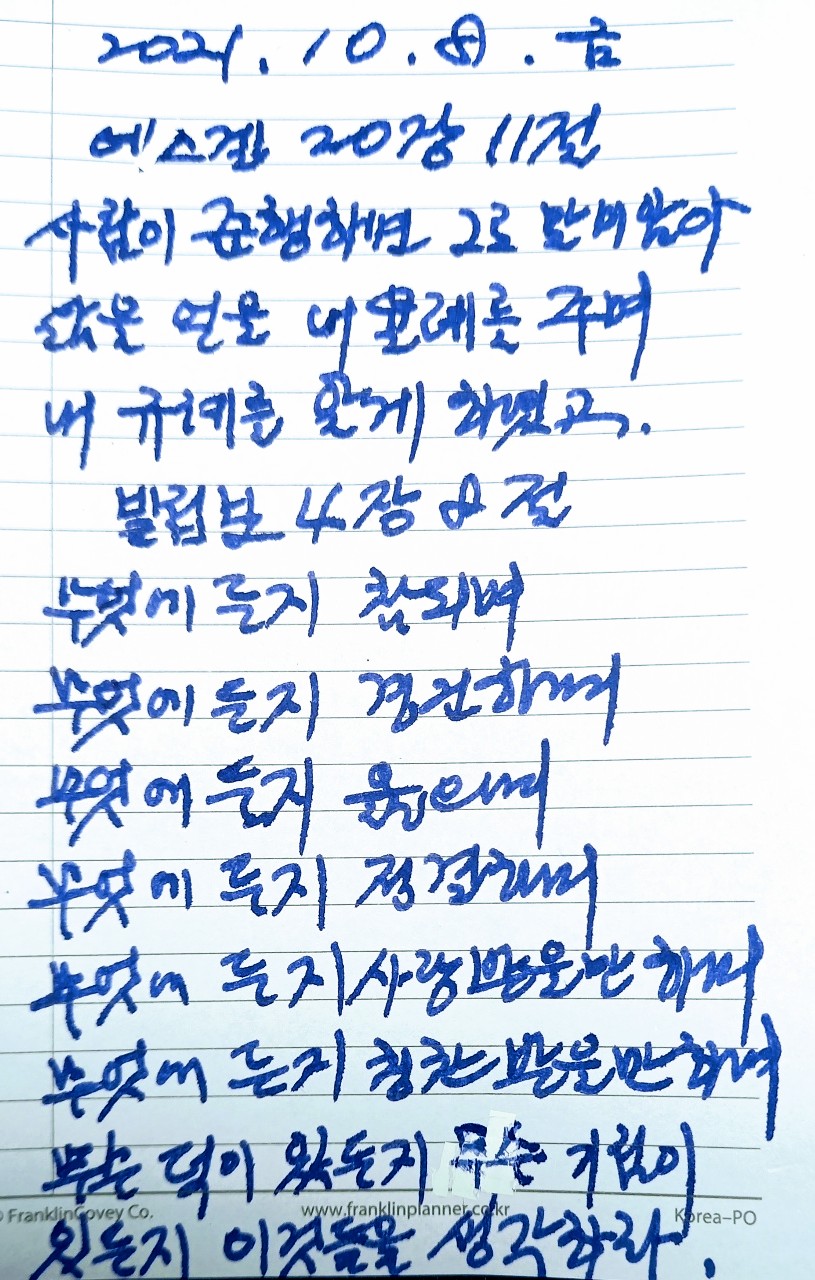 2021. 10. 8. 금
에스겔 20장 11절
사람이 준행하면 그로 말미암아
삶을 얻을 내 율례를 주며
내 규례를 알게 하였고.
빌립보 4장 8절
무엇에든지 참되며
무엇에든지 경건하며
무엇에든지 옳으며
무엇에든지 정결하며
무엇에든지 사랑받을만하며
무엇에든지 칭찬받을만하며
무슨 덕이 있든지 무슨 기림이
FranklinCovey Co. www.franklinplanner.co.kr Korea-PO
있든지 이것들을 생각하라.